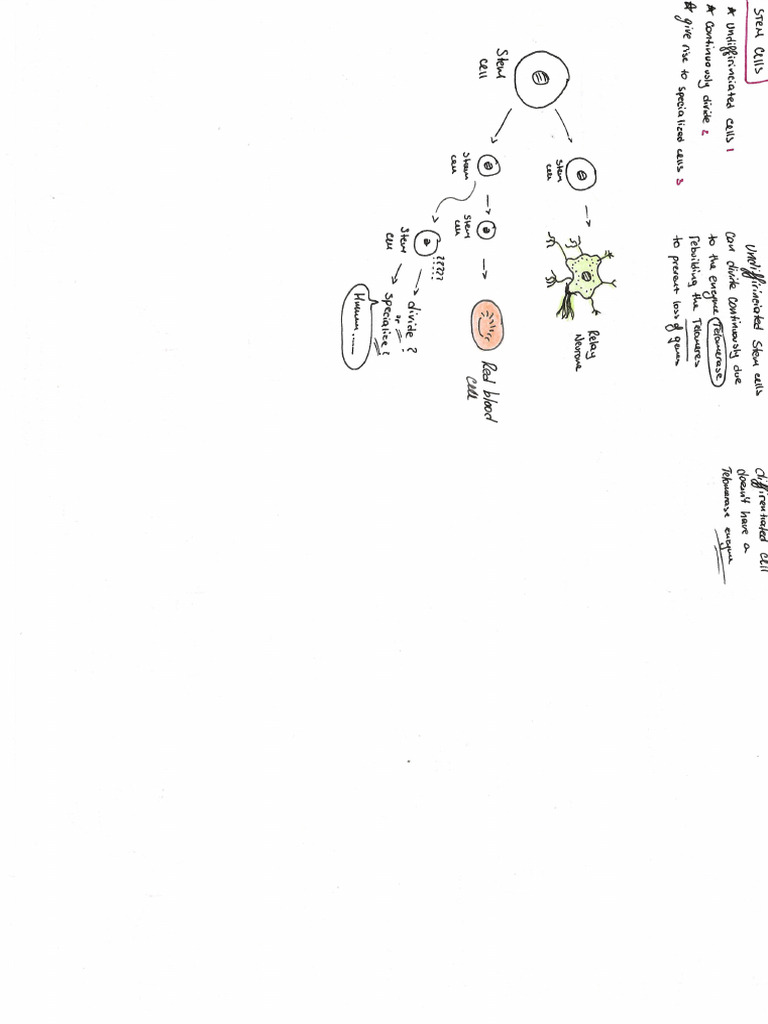 STEM CELLS
* Undiffirinciated cells 1
* Continuously divide 2
* give rise to specialized cells 3
Undiffirinciated Stem cells
can divide continuously due
to the enzyme Telomerase
rebuilding the Telomeres
to prevent loss of genes
diffirentiated cell
doesn't have a
Telomerase enzyme
Stem
cell
Stem
cell
Relay
Neurone
Stem
cell
Stem
cell
Red blood
cell
Stem
cell
?????
divide?
or
specialize?
Hmmm......